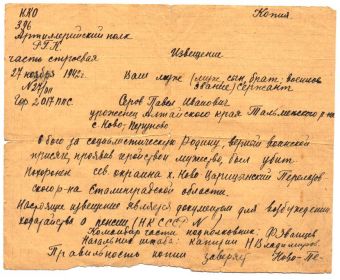 НКО
Копия
396
Артиллерийский полк
РГК
Извещение
часть строевая
27 ноября 1942г.
Ваш муж (муж, сын, брат, военное
N 27/011
звание) сержант
Серов Павел Иванович
уроженец Алтайского края Тальменского р-на
с. Ново-Перуново
В бою за социалистическую Родину, верный воинской
присяге, проявив геройство и мужество, был убит
Похоронен сев. окраина х. Ново Царицынский
р-на Сталинградской области.
Настоящее извещение является документом для возбуждения
ходатайства о пенсии (НК СССР N
Командир части подполковник:
Начальник штаба: капитан Н Владимиров.
Правильность копии заверяет Ново-Пе-